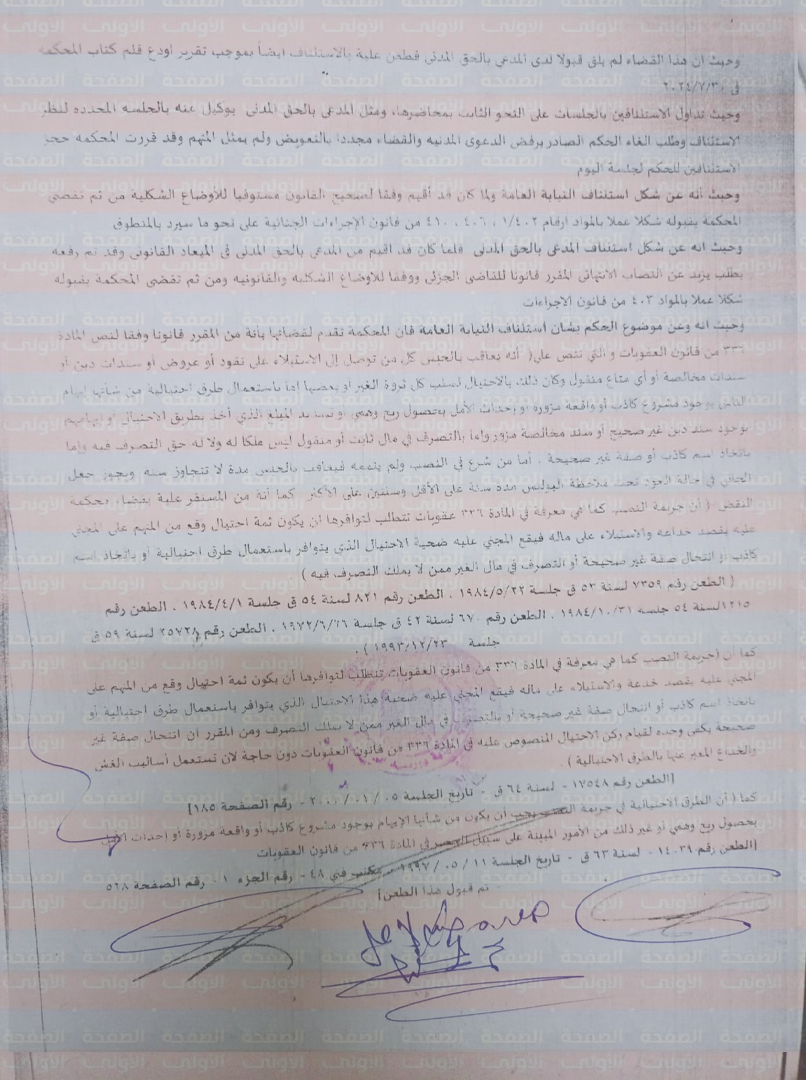 وحيث ان هذا القضاء لم يلق قبولا لدى المدعي بالحق المدنى فطعن علية بالاستئناف ايضاً بموجب تقرير اودع قلم كتاب المحكمة
فى ٢٠٢٤/٧/٣٠
وحيث تداول الاستئنافين بالجلسات على النحو الثابت بمحاضرها، ومثل المدعي بالحق المدنى بوكيل عنه بالجلسه المحدده لنظر
الاستئناف وطلب الغاء الحكم الصادر برفض الدعوى المدنيه والقضاء مجددا بالتعويض ولم يمثل المتهم وقد قررت المحكمه حجز
الاستئنافين للحكم لجلسة اليوم
وحيث أنه عن شكل استئناف النيابة العامة ولما كان قد أقيم وفقا لصحيح القانون مستوفيا للأوضاع الشكلية من ثم تقضى
المحكمة بقبوله شكلا عملا بالمواد ارقام ١/٤٠٢ ، ٤٠٦ ، ٤١٠ من قانون الإجراءات الجنائية على نحو ما سيرد بالمنطوق
وحيث انه عن شكل استئناف المدعي بالحق المدنى فلما كان قد اقيم من المدعي بالحق المدنى فى الميعاد القانونى وقد تم رفعه
بطلب يزيد عن النصاب الانتهائى المقرر قانونا للقاضى الجزئى ووفقا للاوضاع الشكليه والقانونيه ومن ثم تقضى المحكمة بقبوله
شكلا عملا بالمواد ٤٠٣ من قانون الاجراءات
وحيث انه وعن موضوع الحكم بشان استئناف النيابة العامة فان المحكمة تقدم لقضائها بأنة من المقرر قانونا وفقا لنص المادة
٣٣٦ من قانون العقوبات و التي تنص على( أنه يعاقب بالحبس كل من توصل إلى الاستيلاء على نقود أو عروض أو سندات دين أو
سندات مخالصة أو أي متاع منقول وكان ذلك بالاحتيال لسلب كل ثروة الغير او بعضها إما باستعمال طرق احتيالية من شأنها إيهام
الناس بوجود مشروع كاذب أو واقعة مزورة أو إحداث الأمل بحصول ربح وهمي أو تسديد المبلغ الذي أخذ بطريق الاحتيال أو إيهامهم
بوجود سند دين غير صحيح أو سند مخالصة مزور وإما بالتصرف في مال ثابت أو منقول ليس ملكا له ولا له حق التصرف فيه وإما
باتخاذ اسم كاذب أو صفة غير صحيحة . أما من شرع في النصب ولم يتممه فيعاقب بالحبس مدة لا تتجاوز سنه ويجوز جعل
الجاني في حالة العود تحت ملاحظة البوليس مده سنة على الأقل وسنتين على الأكثر كما أنه من المستقر علية بقضاء محكمة
النقض ( أن جريمة النصب كما هي معرفة في المادة ٣٣٦ عقوبات تتطلب لتوافرها أن يكون ثمة احتيال وقع من المتهم على المجني
عليه بقصد خداعه والاستيلاء على ماله فيقع المجني عليه ضحية الاحتيال الذي يتوافر باستعمال طرق احتيالية أو باتخاذ اسم
كاذب أو انتحال صفة غير صحيحة أو التصرف في مال الغير ممن لا يملك التصرف فيه )
( الطعن رقم ٧٣٥٩ لسنة ٥٣ ق جلسة ١٩٨٤/٥/٢٢ ، الطعن رقم ٨٢١ لسنة ٥٤ ق جلسة ١٩٨٤/٤/١ ، الطعن رقم
١٢١٥ لسنة ٥٤ جلسه ١٩٨٤/١٠/٣١ ، الطعن رقم ٦٧٠ لسنة ٤٢ ق جلسة ١٩٧٢/٦/٢٦ ، الطعن رقم ٢٥٧٢٨ لسنة ٥٩ ق
جلسة ١٩٩٣/١٢/٢٣ ) .
كما أن (جريمة النصب كما هي معرفة في المادة ٣٣٦ من قانون العقوبات تتطلب لتوافرها أن يكون ثمة احتيال وقع من المتهم على
المجني عليه بقصد خدعة والاستيلاء على ماله فيقع المجني عليه ضحية هذا الاحتيال الذي يتوافر باستعمال طرق احتيالية أو
باتخاذ اسم كاذب أو انتحال صفة غير صحيحة أو بالتصرف في مال الغير ممن لا يملك التصرف ومن المقرر أن انتحال صفة غير
صحيحة يكفى وحده لقيام ركن الاحتيال المنصوص عليه في المادة ٣٣٦ من قانون العقوبات دون حاجة لان تستعمل أساليب الغش
والخداع المعبر عنها بالطرق الاحتيالية ) .
[الطعن رقم ١٧٥٤٨ - لسنة ٦٤ ق - تاريخ الجلسة ٠٥ / ٠١ / ٢٠٠٠ - رقم الصفحة ١٨٥]
كما ( أن الطرق الاحتيالية في جريمة النصب يجب أن يكون من شأنها الإيهام بوجود مشروع كاذب أو واقعة مزورة أو إحداث الأمل
بحصول ربح وهمي أو غير ذلك من الأمور المبينة على سبيل الحصر في المادة ٣٣٦ من قانون العقوبات
[الطعن رقم ١٤٠٣٩ - لسنة ٦٣ ق - تاريخ الجلسة ١١ / ٠٥ / ١٩٩٧ - مكتب فني ٤٨ - رقم الجزء ١ - رقم الصفحة ٥٦٨
تم قبول هذا الطعن]